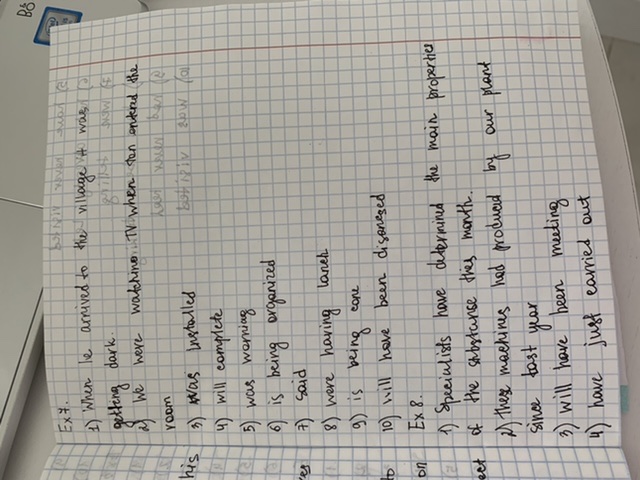 Ex 7.
1) When he arrived to the village it was
getting dark.
2) We have watching TV when Jan entered the
room
3) was installed
4) will complete
5) was working
6) is being organized
7) said
8) were having lunch
9) is being
10) will have been
Ex 8.
1) Specialists have determined the main properties
of the substance this month.
2) These machines had produced by our plant
since last year
3) Will have been meeting
4) have just carried out
his
to
on
ect